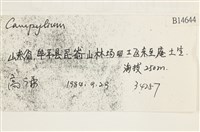 Campylium
B14644
山东省, 牟平县昆嵛山林场 三工区朱豆庵 土生.
海拔 250m.
高谦 1984.9.29 34257